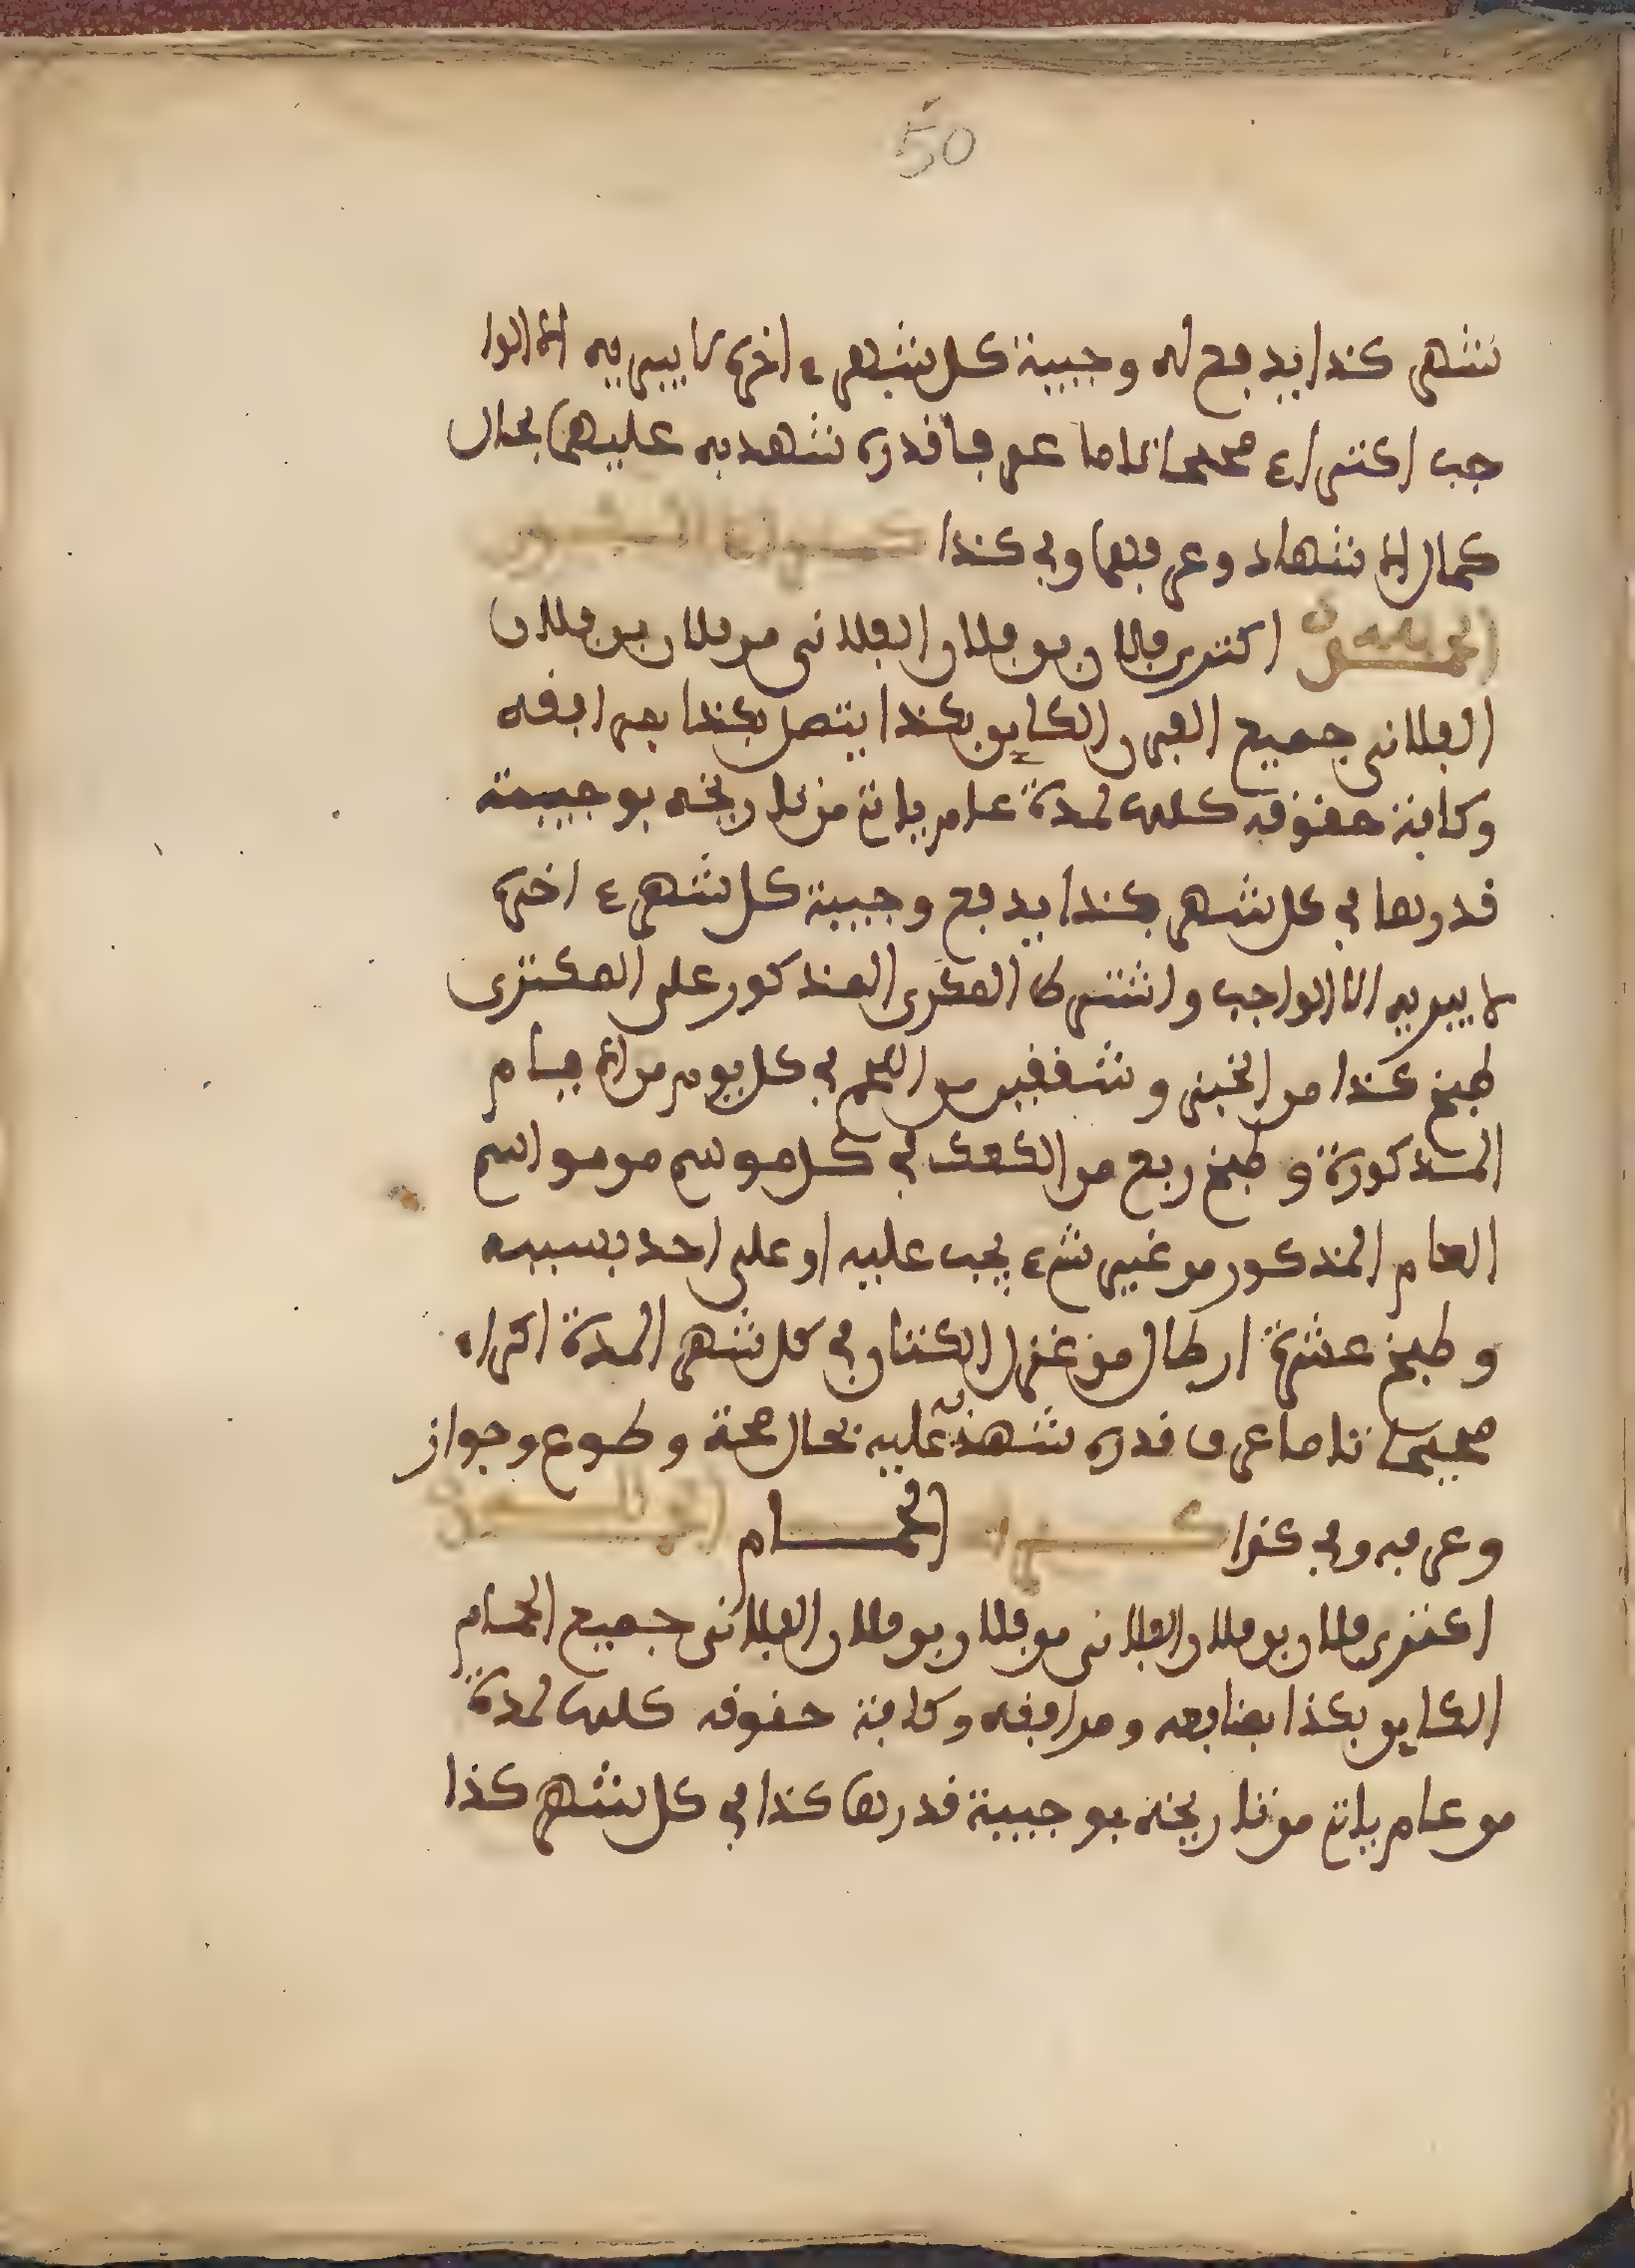 50
شهر كذا يدفع له وجيبة كل شهر ء اخره لا يبريه الا الوا
جب اكتراء صحيحا تاما عرفا قدره شهد به عليهما بحال
كمال الاشهاد وعرفهما وفي كذا
اكترى فلان بن فلان الفلاني من فلان بن فلان
الفلاني جميع الفرن الكاين بكذا يتصل بكذا بمرافقه
وكافة حقوقه كلها لمدة عام يات من تاريخه بوجيبة
قدرها في كل شهر بكذا يدفع وجيبة كل شهر ء اخره
لا يبريه الا الواجب واشترط المكرى المذكور على المكترى
طبخ كذا من الخبز وشقفين من اللحم في كل يوم من الايام
المذكورة وطبخ ربع من الكعك في كل موسم من مواسم
العام المذكور من غير شيء يجب عليه او على احد بسببه
وطبخ عشرة ارطال من غزل الكتان في كل شهر المدة اكراء
صحيحا تاما عرف قدره شهد به عليه بحال صحة وطوع وجواز
وعرفه وفي كذا كراء الحمام
اكترى فلان بن فلان الفلاني من فلان بن فلان الفلاني جميع الحمام
الكاين بكذا بمنافعه ومرافقه وكافة حقوقه كلها لمدة
من عام يات من تاريخه بوجيبة قدرها كذا في كل شهر كذا